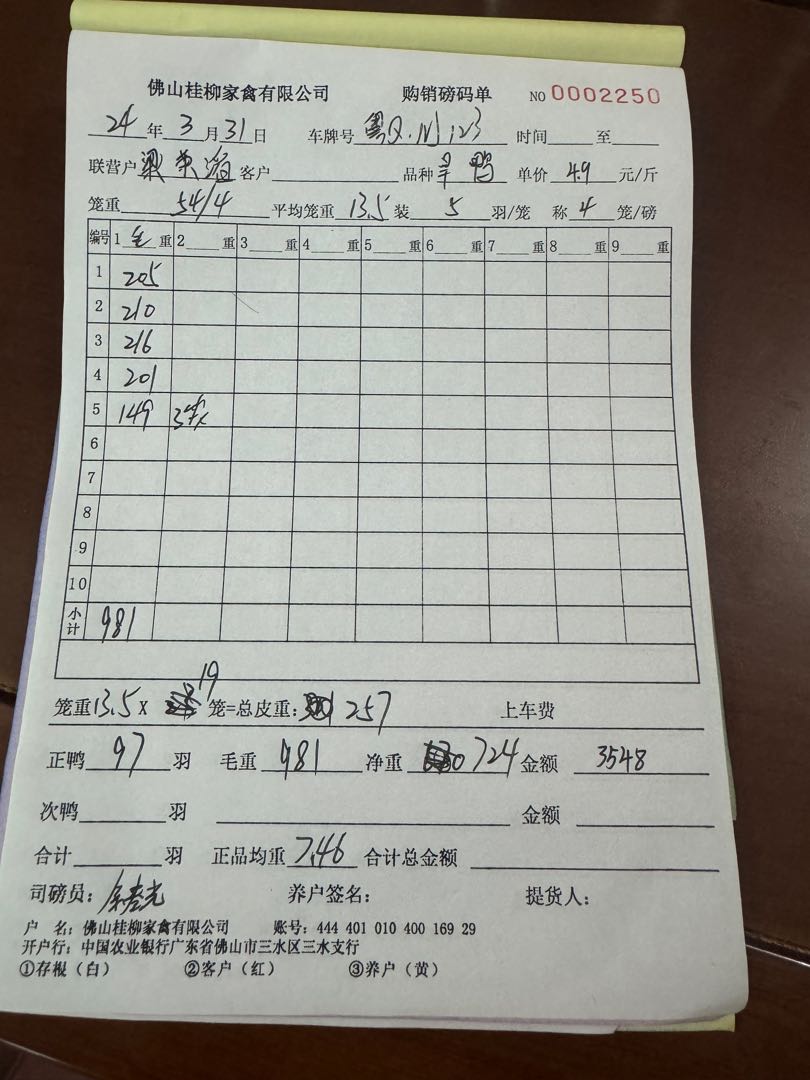 佛山桂柳家禽有限公司 购销磅码单 NO 0002250
24 年 3 月 31 日 车牌号 时间 至
联营户 梁 客户 品种 鸭 单价 4.9 元/斤
笼重 54/4 平均笼重 13.5 装 5 羽/笼 称 4 笼/磅
编号 1 毛 重 2 重 3 重 4 重 5 重 6 重 7 重 8 重 9 重
1 205
2 210
3 216
4 201
5 149
6
7
8
9
10
小计 981
笼重 13.5 X 19 笼=总皮重: 257 上车费
正鸭 97 羽 毛重 981 净重 724 金额 3548
次鸭 羽 金额
合计 羽 正品均重 7.46 合计总金额
司磅员: 养户签名: 提货人:
户 名: 佛山桂柳家禽有限公司 账号: 444 401 010 400 169 29
开户行: 中国农业银行广东省佛山市三水区三水支行
①存根(白) ②客户(红) ③养户(黄)